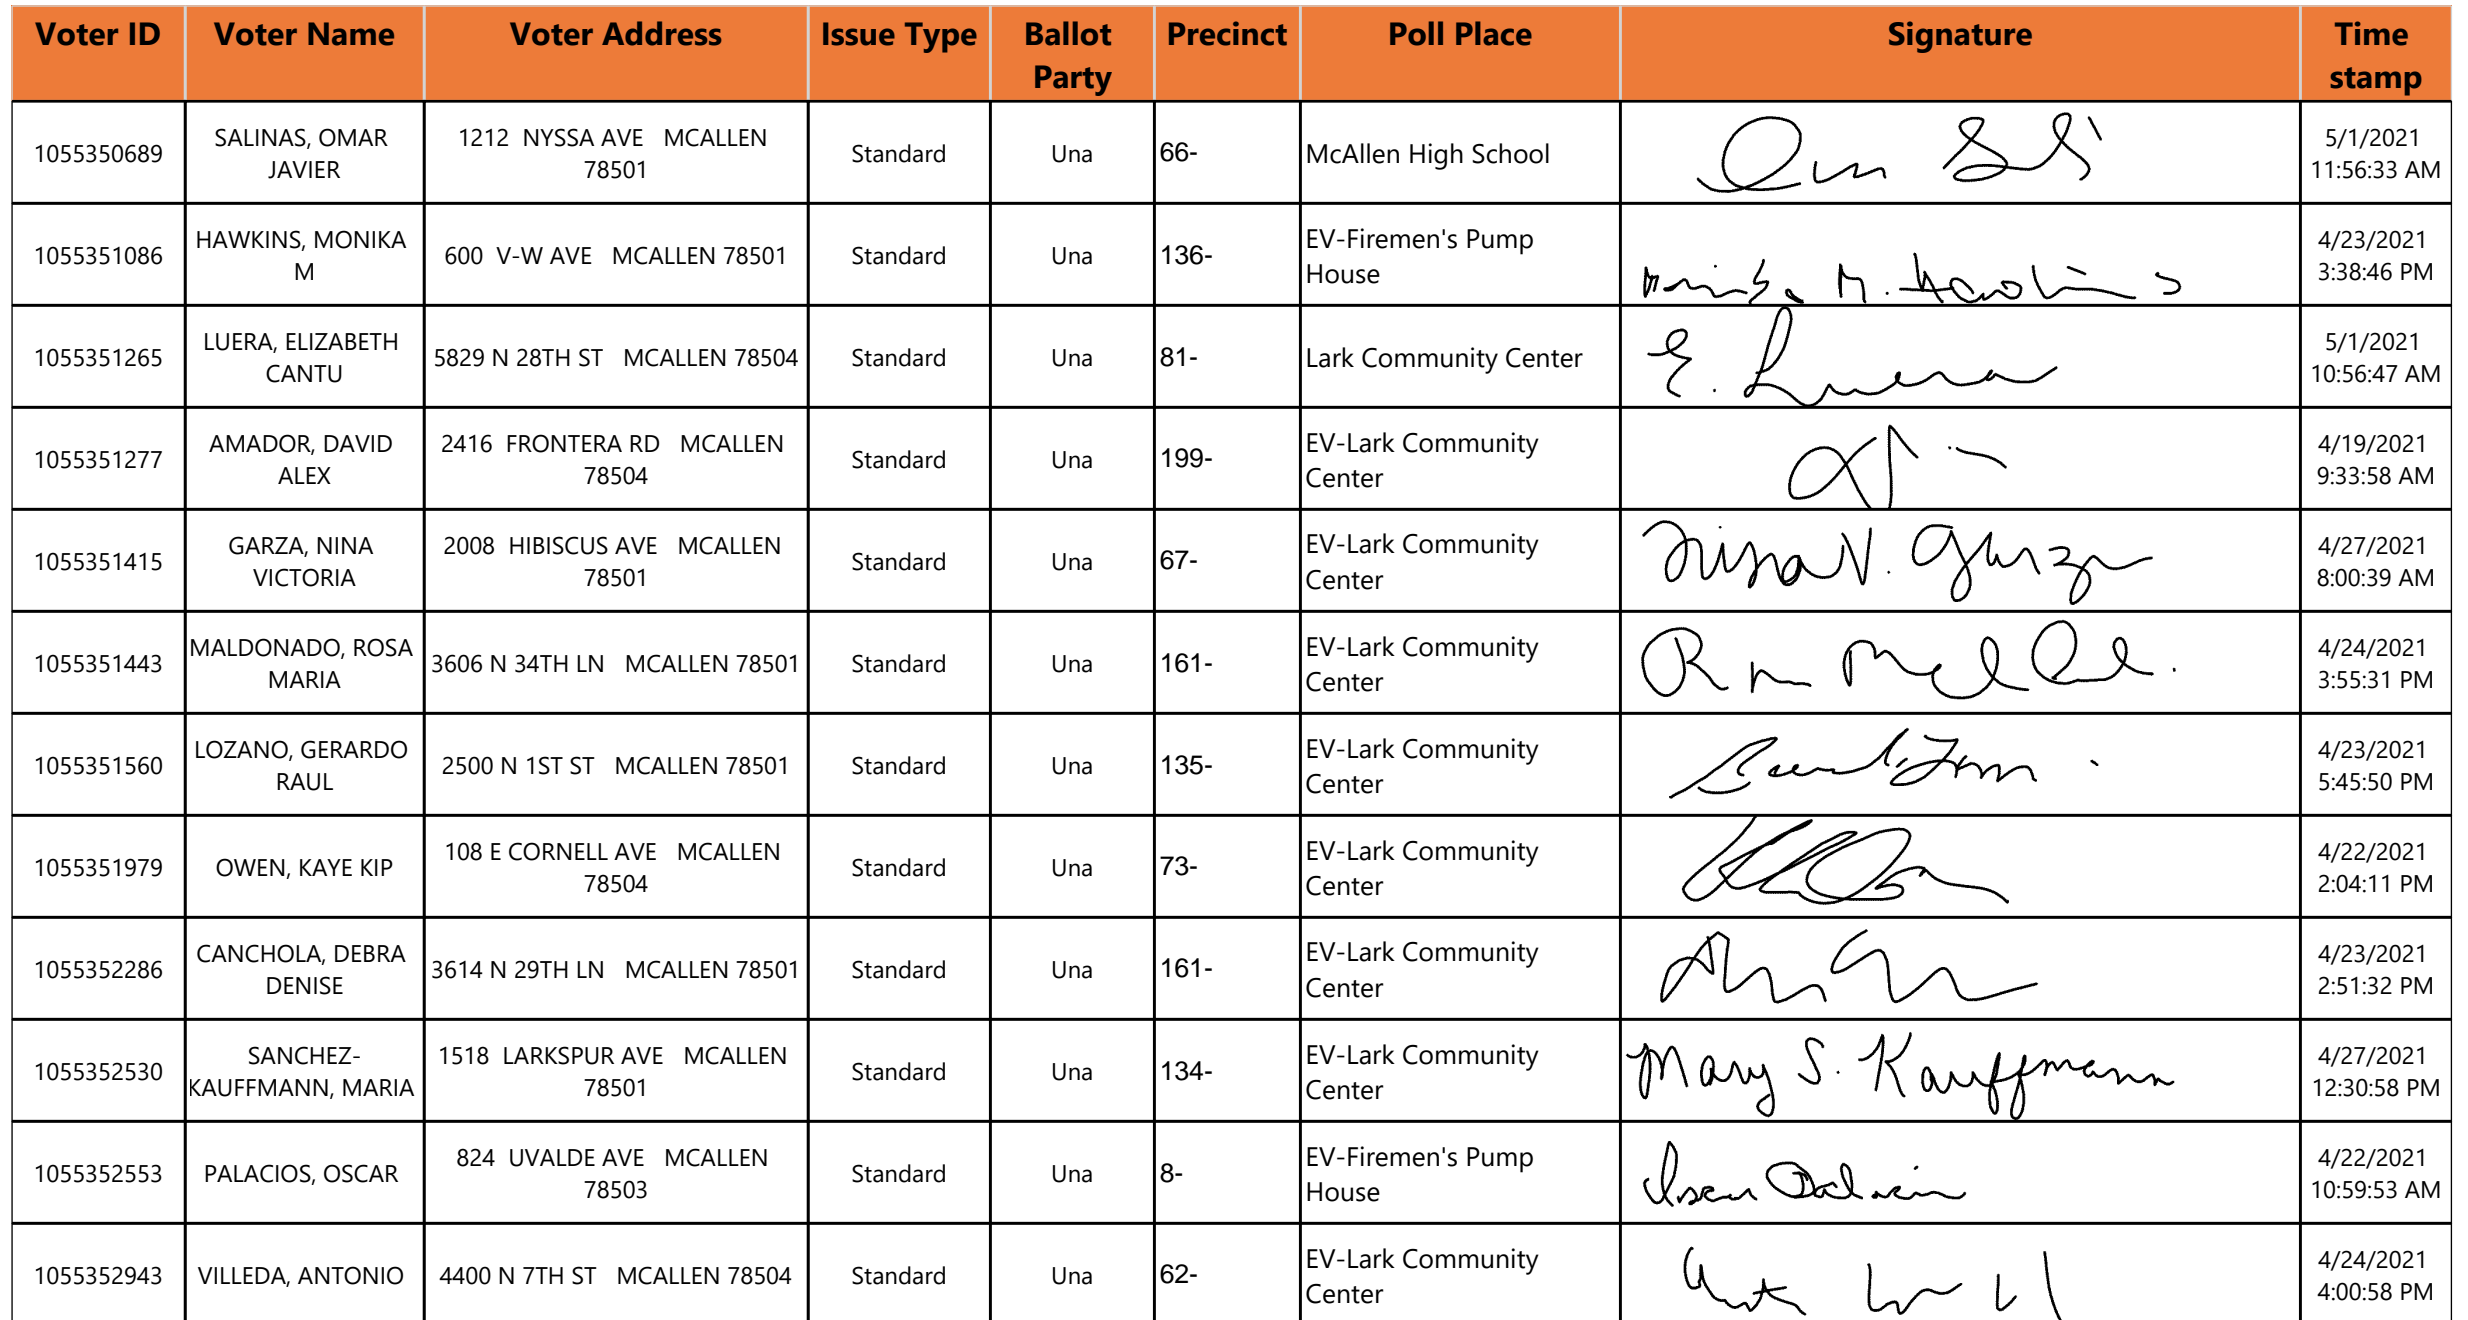 Voter ID Voter Name Voter Address Issue Type Ballot Party Precinct Poll Place Signature Time stamp
1055350689 SALINAS, OMAR JAVIER 1212 NYSSA AVE MCALLEN 78501 Standard Una 66- McAllen High School 5/1/2021 11:56:33 AM
1055351086 HAWKINS, MONIKA M 600 V-W AVE MCALLEN 78501 Standard Una 136- EV-Firemen's Pump House Monika M. Hawkins 4/23/2021 3:38:46 PM
1055351265 LUERA, ELIZABETH CANTU 5829 N 28TH ST MCALLEN 78504 Standard Una 81- Lark Community Center E. Luera 5/1/2021 10:56:47 AM
1055351277 AMADOR, DAVID ALEX 2416 FRONTERA RD MCALLEN 78504 Standard Una 199- EV-Lark Community Center 4/19/2021 9:33:58 AM
1055351415 GARZA, NINA VICTORIA 2008 HIBISCUS AVE MCALLEN 78501 Standard Una 67- EV-Lark Community Center Nina V. Garza 4/27/2021 8:00:39 AM
1055351443 MALDONADO, ROSA MARIA 3606 N 34TH LN MCALLEN 78501 Standard Una 161- EV-Lark Community Center 4/24/2021 3:55:31 PM
1055351560 LOZANO, GERARDO RAUL 2500 N 1ST ST MCALLEN 78501 Standard Una 135- EV-Lark Community Center 4/23/2021 5:45:50 PM
1055351979 OWEN, KAYE KIP 108 E CORNELL AVE MCALLEN 78504 Standard Una 73- EV-Lark Community Center 4/22/2021 2:04:11 PM
1055352286 CANCHOLA, DEBRA DENISE 3614 N 29TH LN MCALLEN 78501 Standard Una 161- EV-Lark Community Center 4/23/2021 2:51:32 PM
1055352530 SANCHEZ-KAUFFMANN, MARIA 1518 LARKSPUR AVE MCALLEN 78501 Standard Una 134- EV-Lark Community Center Mary S. Kauffmann 4/27/2021 12:30:58 PM
1055352553 PALACIOS, OSCAR 824 UVALDE AVE MCALLEN 78503 Standard Una 8- EV-Firemen's Pump House Oscar Palacios 4/22/2021 10:59:53 AM
1055352943 VILLEDA, ANTONIO 4400 N 7TH ST MCALLEN 78504 Standard Una 62- EV-Lark Community Center 4/24/2021 4:00:58 PM